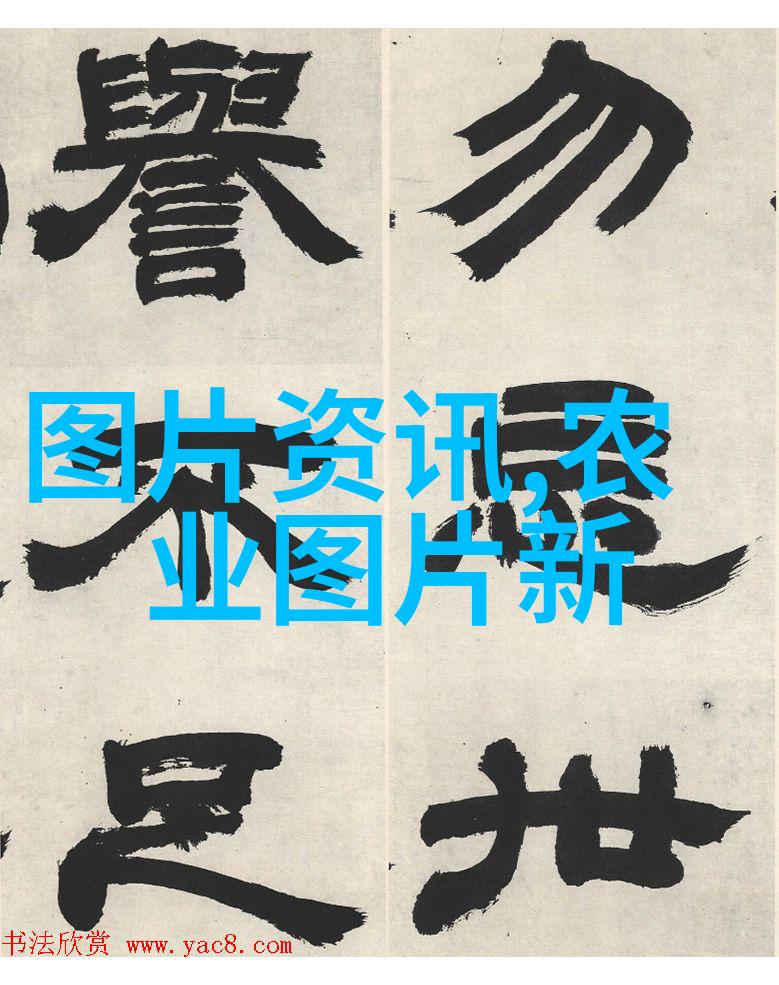 勿世
譽不足
图片资讯,农
业图片新
书法欣赏 www.yac8.com